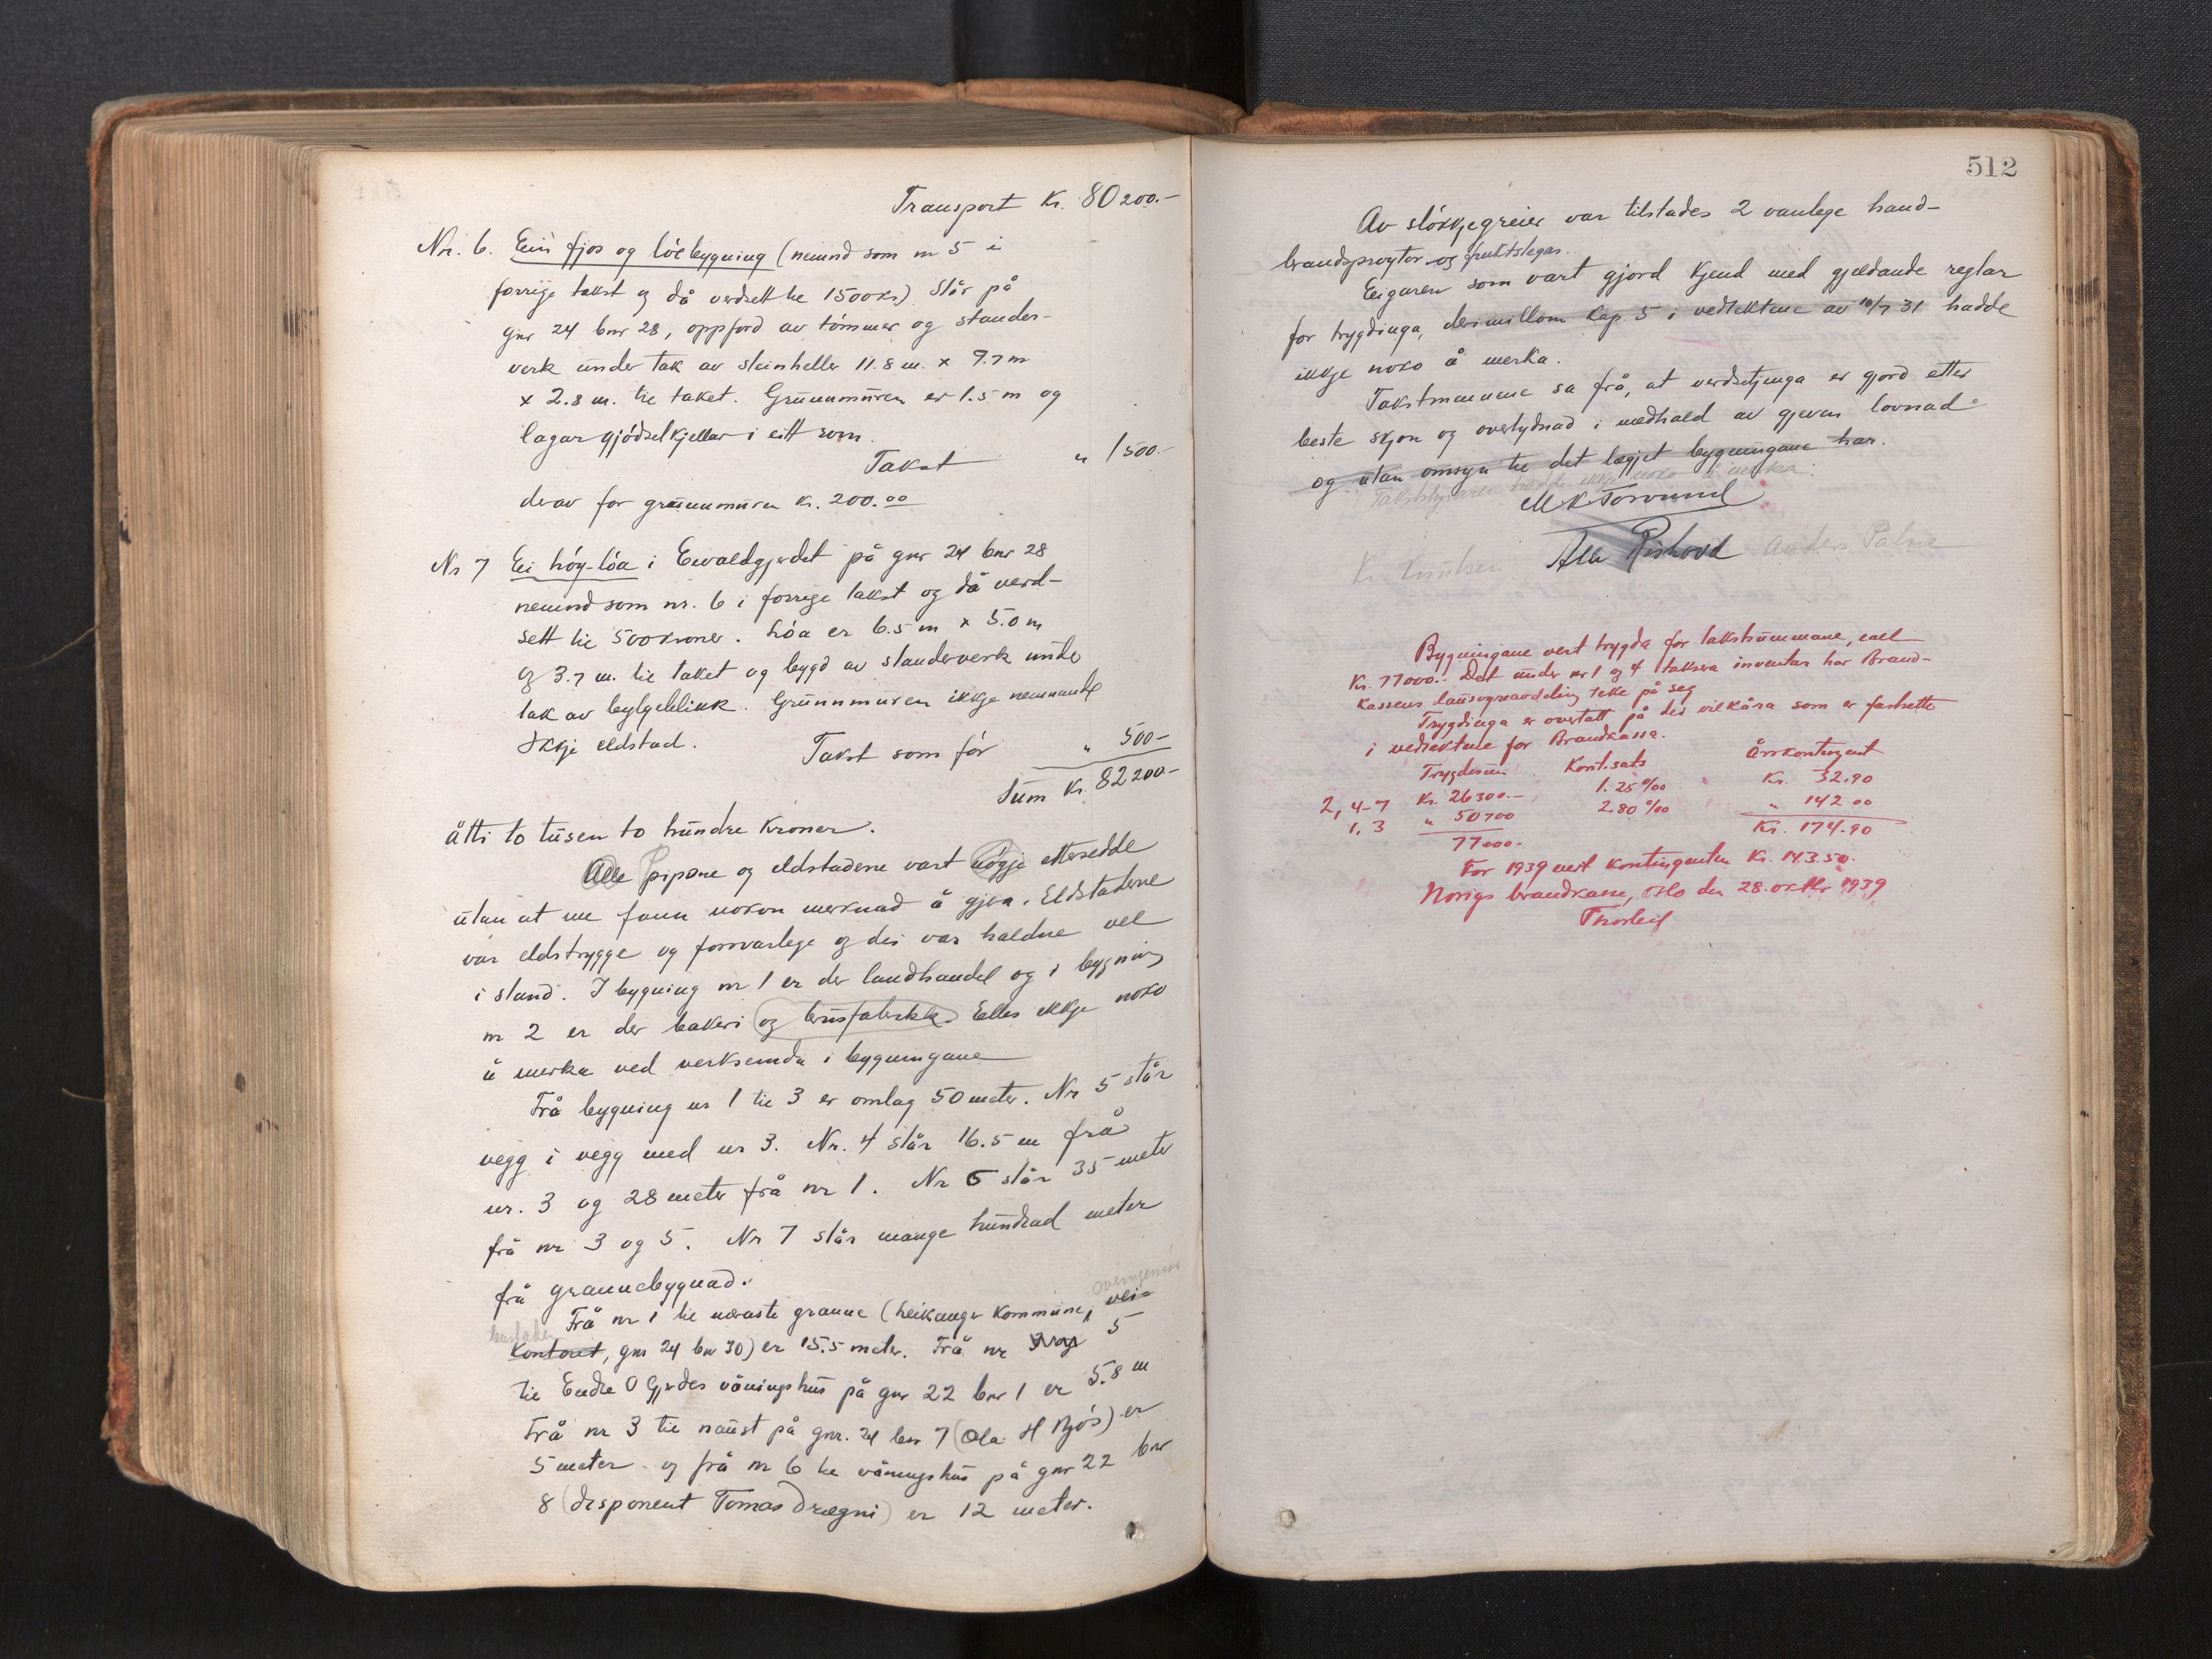 Transport Kr. 80200.-
Nr. 6. Ein fjos og löebygning (nemnd som nr 5 i
forrige takst og då verdsett te 1500 kr) Står på
gnr 24 bnr 28, oppförd av tömmer og stander-
verk under tak av steinheller 11.8 m. x 9.7 m
x 2.8 m. te taket. Grunnmuren er 1.5 m og
lagar gjödselkjellar i eitt rom.
Takst " 1500.-
derav for grunnmuren kr. 200.00
Nr 7 Ei höy-löa i Ewaldgjerdet på gnr 24 bnr 28
nemnd som nr. 6 i forrige takst og då verd-
sett til 500 kroner. Löa er 6.5 m x 5.0 m
og 3.7 m. til taket og bygd av standerverk under
tak av bylgeblikk. Grunnmuren ikkje nemnande
Ikkje eldstad.
Takst som för " 500-
Sum Kr. 82200.-
åtti to tusen to hundre kroner.
Alle pipone og eldstadene vart nögje ettersedde
utan at me fann nokon merknad å gjera. Eldstadene
var eldstrygge og forsvarlege og dei var haldne vel
i stand. I bygning nr 1 er der landhandel og i bygning
nr 2 er der bakeri og brusfabrikk. Elles ikkje noko
å merka ved verksemda i bygningane
Frå bygning nr 1 til 3 er omlag 50 meter. Nr 5 står
vegg i vegg med nr 3. Nr. 4 står 16.5 m frå
nr. 3 og 28 meter frå nr 1. Nr 6 står 35 meter
frå nr 3 og 5. Nr 7 står mange hundrad meter
frå grannebygnad.
overingeniör
Frå nr 1 til næraste granne (Leikanger kommune, vei-
bustaden
kontoret, gnr 24 bnr 30) er 15.5 meter. Frå nr 3 og 5
til Endre O Gjerdes våningshus på gnr 22 bnr 1 er 5.8 m
Frå nr 3 til naust på gnr. 24 bnr 7 (Ola H Njös) er
5 meter og frå nr 6 te våningshus på gnr 22 bnr
8 (disponent Tomas Drægni) er 12 meter.
512
Av slökkjegreier var tilstades 2 vanlege hand-
brandsprøytor og fruktslegar.
Eigaren som vart gjord kjend med gjeldande reglar
for trygdinga, derimillom Kap. 5 i vedtektene av 10/7 31 hadde
ikkje noko å merka.
Takstmennene sa frå, at verdsetjinga er gjord etter
beste skjøn og overtydnad i medhald av gjeven lovnad
og utan omsyn te det lægjet bygningane har.
Takststyraren hadde ikkje noko å merka.
M K Torvund
Kr Knutsen Alb Riskovd Anders Palne
Bygningane vert trygda for takstsummane, i alt
Kr. 77000.- Det under nr 1 og 4 taksera inventar har Brand-
kassens lausøyreavdeling teke på seg
Trygdinga er overtatt på dei vilkåra som er fastsette
i vedtektene for Brandkassa.
Trygdesum Kont.sats Årskontingent
2, 4-7 Kr. 26300.- 1.25 ‰ Kr. 32.90
1, 3 " 50700 2.80 ‰ " 142 00
77000.- Kr. 174.90
For 1939 vert kontingenten Kr. 143.50.
Norigs brandkasse, Oslo den 28. oktbr 1939
Thorleif